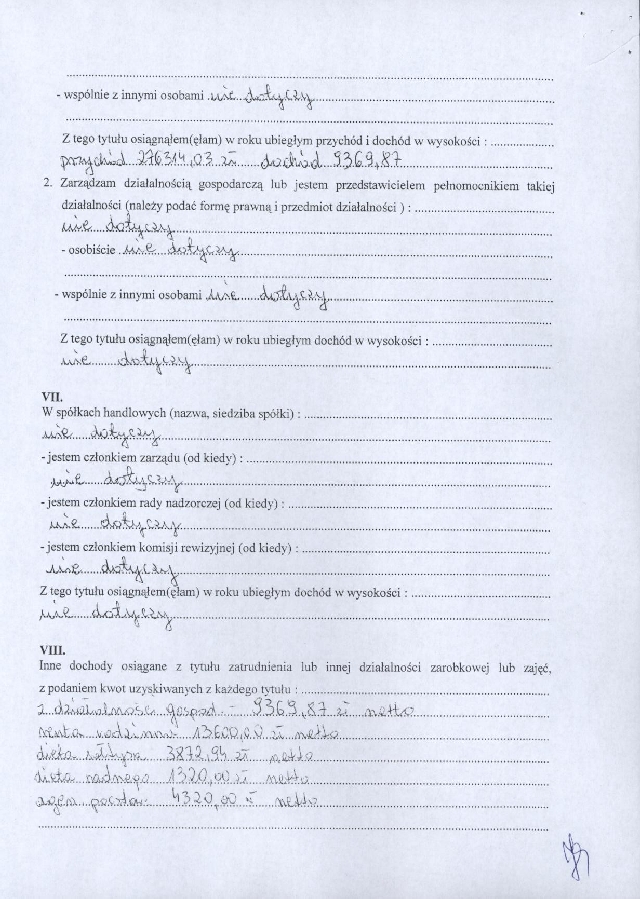 - wspólnie z innymi osobami nie dotyczy
Z tego tytułu osiągnąłem(ęłam) w roku ubiegłym przychód i dochód w wysokości :
przychód 276314,03 zł dochód 9369,87
2. Zarządzam działalnością gospodarczą lub jestem przedstawicielem pełnomocnikiem takiej
działalności (należy podać formę prawną i przedmiot działalności ) :
nie dotyczy
- osobiście nie dotyczy
- wspólnie z innymi osobami nie dotyczy
Z tego tytułu osiągnąłem(ęłam) w roku ubiegłym dochód w wysokości :
nie dotyczy
VII.
W spółkach handlowych (nazwa, siedziba spółki) :
nie dotyczy
- jestem członkiem zarządu (od kiedy) :
nie dotyczy
- jestem członkiem rady nadzorczej (od kiedy) :
nie dotyczy
- jestem członkiem komisji rewizyjnej (od kiedy) :
nie dotyczy
Z tego tytułu osiągnąłem(ęłam) w roku ubiegłym dochód w wysokości :
nie dotyczy
VIII.
Inne dochody osiągane z tytułu zatrudnienia lub innej działalności zarobkowej lub zajęć,
z podaniem kwot uzyskiwanych z każdego tytułu :
z działalności gospod. - 9369,87 zł netto
renta rodzinna 13600,00 zł netto
dieta sołtysa 3872,94 zł netto
dieta radnego 1320,00 zł netto
4320,00 zł netto